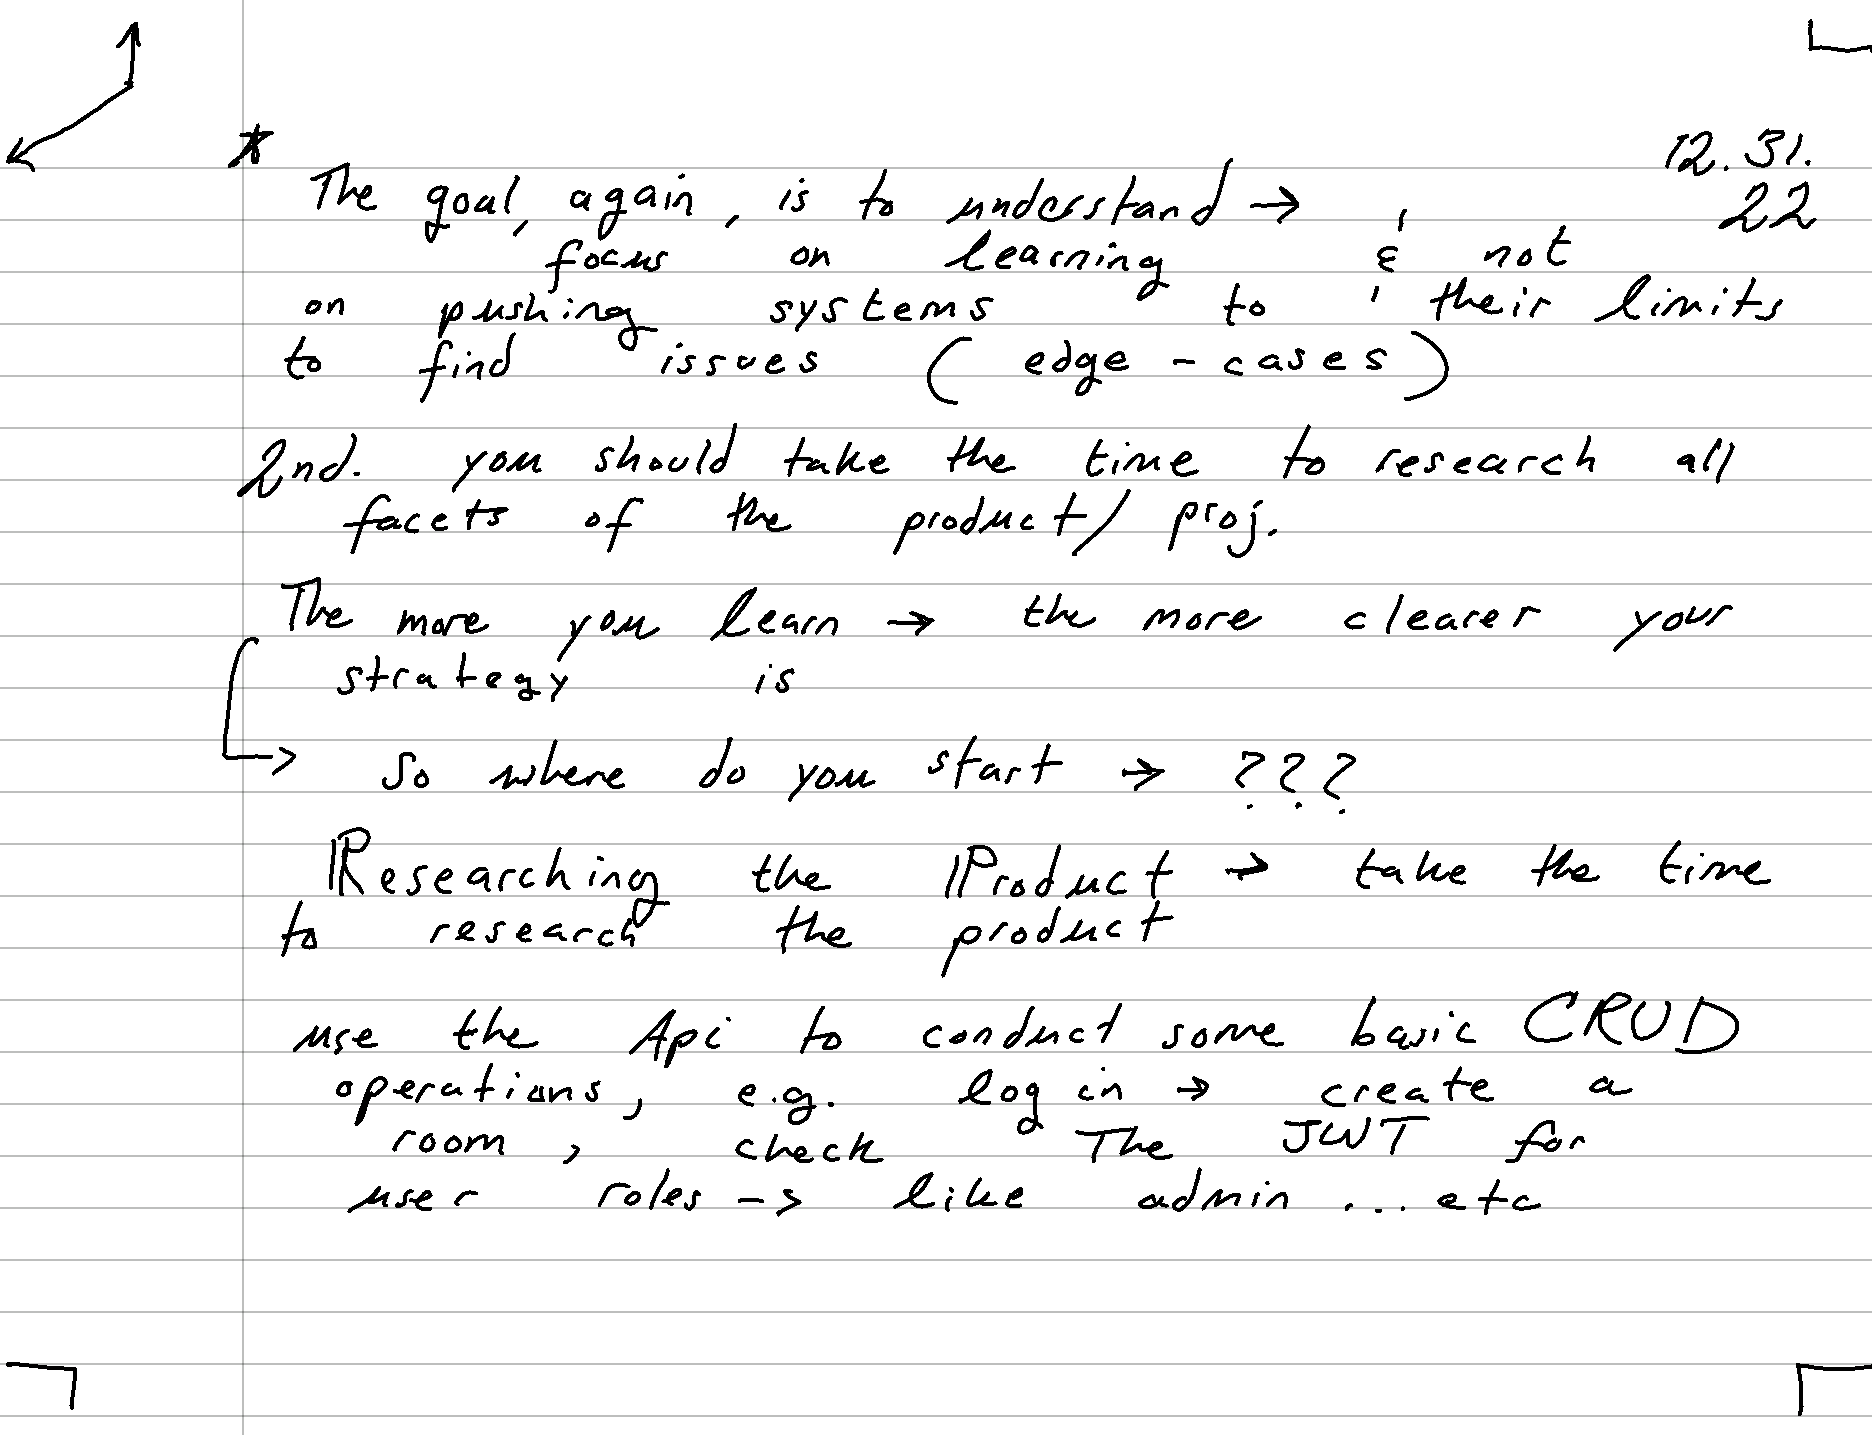 * 12.31.
The goal, again, is to understand → 22
focus on learning & not
on pushing systems to their limits
to find issues (edge - cases)
2nd. you should take the time to research all
facets of the product/ proj.
The more you learn → the more clearer your
strategy is
→ So where do you start → ???
Researching the Product → take the time
to research the product
use the Api to conduct some basic CRUD
operations, e.g. log in → create a
room, check The JWT for
user roles -> like admin ... etc